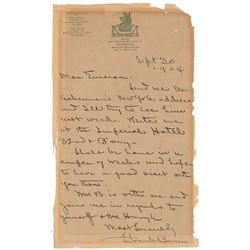 Sept 30
1904
Dear Emerson:
Send me Mr
New York address
and I'll try to see him
next week. Write me
at the Imperial Hotel
32nd & B'way.
Shall be home in a
couple of weeks and hope
to have a good visit with
you then.
Mrs B. is with me and
joins me in regard to
yourself & Mrs Hough.
Most Sincerely